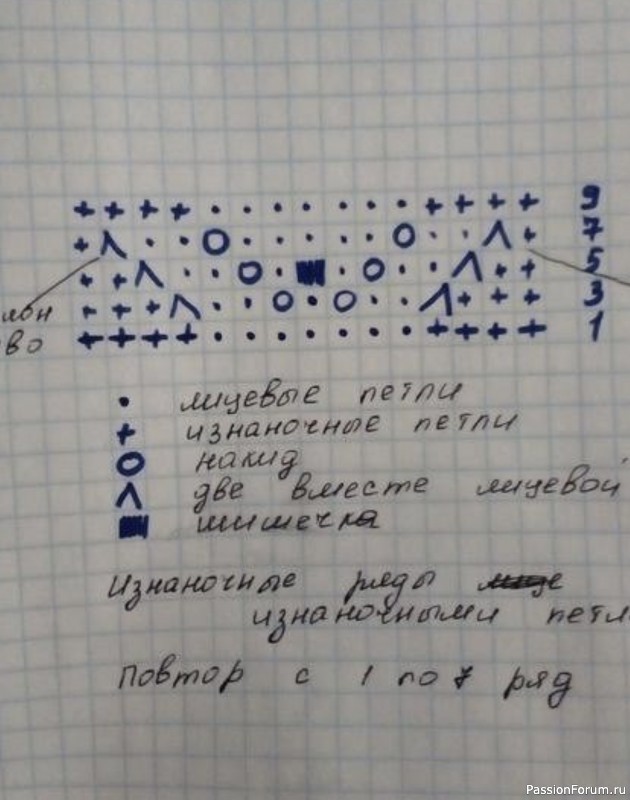 + + + + . . . . . . . + + + + 9
+ Λ . . O O . . Λ + 7
+ + Λ . . O . ■ . O . . Λ + + 5
+ + + Λ . . O . O . . Λ + + + 3
лон
+ + + + . . . . . . . + + + + 1
во
. лицевые петли
+ изнаночные петли
O накид
Λ две вместе лицевой
■ шишечка
Изнаночные ряды
изнаночными петл
Повтор с 1 по 7 ряд
PassionForum.ru